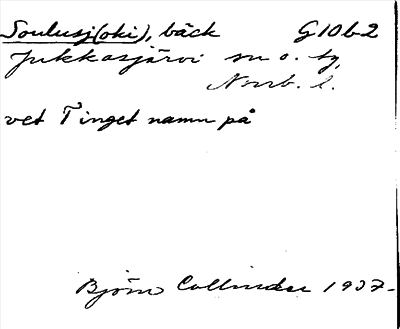 Soulusj(oki), bäck G10b2
Jukkasjärvi sn o. tg,
Norrb. l.
vet Tinget namn på
Björn Collinder 1937.